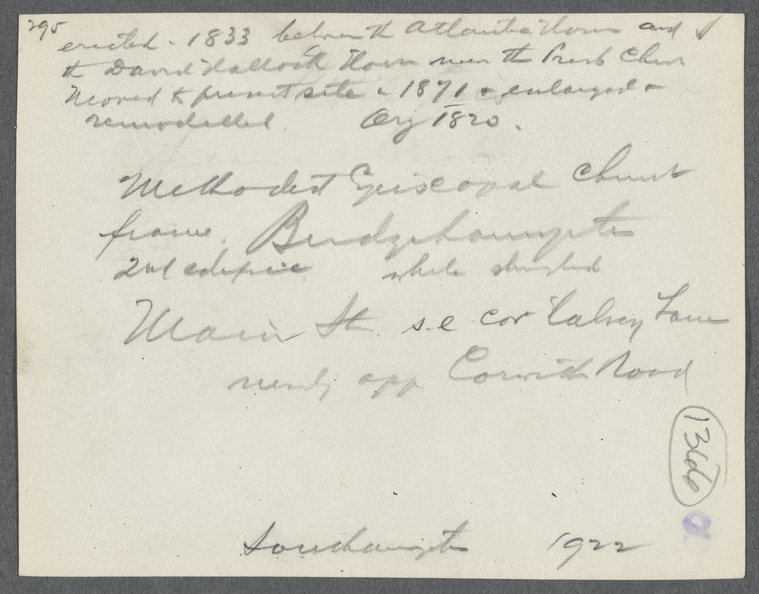 295
erected - 1833 between th Atlantic House and
th David Hallock House near th Presb Church
Moved to present site in 1871 & enlarged &
remodelled Org 1820.
Methodist Episcopal Church
frame. Bridgehampton
2nd edifice white shingled
Main St. s.e cor Halsey Lane
nearly opp Corwith Road
1366
Southampton 1922